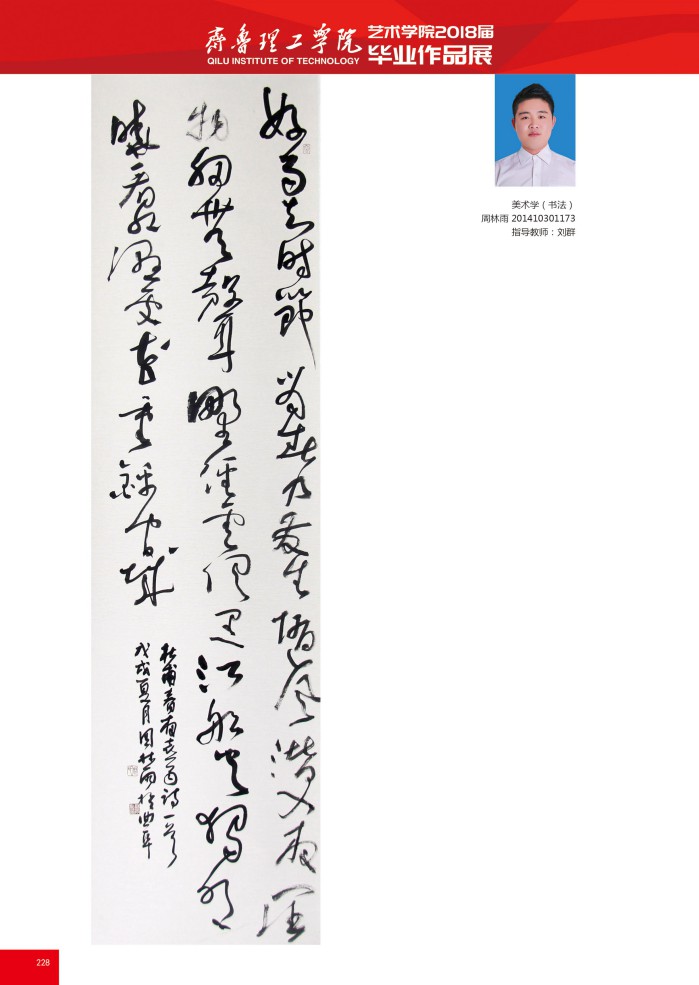 齊魯理工學院
QILU INSTITUTE OF TECHNOLOGY
艺术学院2018届
毕业作品展
美术学（书法）
周林雨 201410301173
指导教师：刘群
好雨知時節當春乃發生隨風潛入夜潤
物細無聲野徑雲俱黑江船火獨明
曉看紅濕處花重錦官城
杜甫春夜喜雨詩一首
戊戌夏月周林雨於曲阜
228